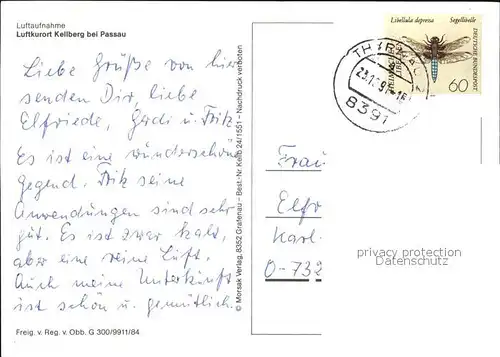 Luftaufnahme
Luftkurort Kellberg bei Passau
Liebe Grüße von hier
senden Dir, liebe
Elfriede, Gerdi u. Fritz.
Es ist eine wunderschöne
Gegend. Fritz seine
Anwendungen sind sehr
gut. Es ist zwar kalt,
aber eine reine Luft.
Auch meine Unterkunft
ist schön u. gemütlich.
Freig. v. Reg. v. Obb. G 300/9911/84
© Morsak Verlag, 8352 Grafenau – Best.-Nr. Kellb 24/1551 – Nachdruck verboten
Libellula depressa Segellibelle
DEUTSCHE BUNDESPOST
60
8391
Frau
Elfr
Karl.
O-732
privacy protection
Datenschutz